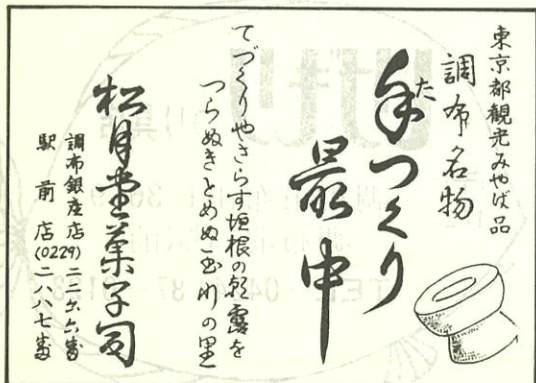 東京都観光みやげ品
調布名物
手つくり
た
最中
てづくりやさらす垣根の朝露を
つらぬきとめぬ玉川の里
松月堂菓子司
調布銀座店
駅前店(0229)二二六六番
二八八七番